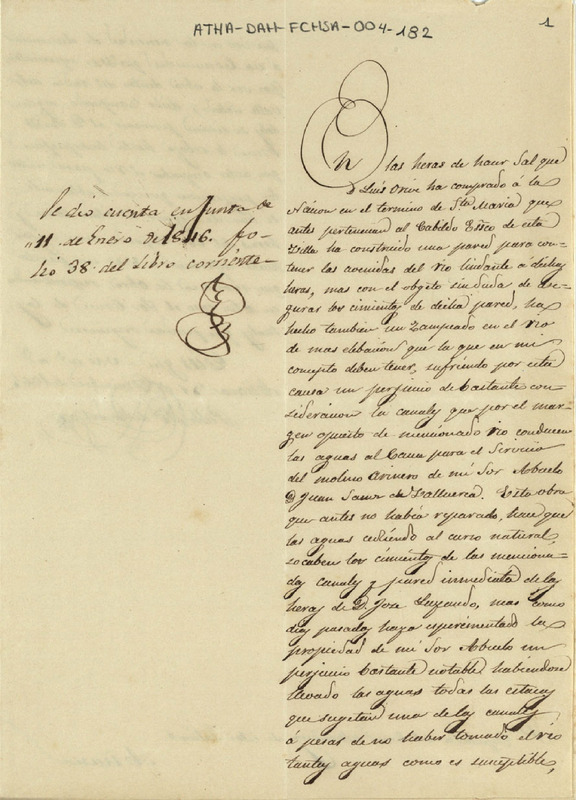 ATHA-DAH-FCHSA-004-182
1
Se dio cuenta en Junta de
11 de Enero de 1846. fo-
lio 38 del Libro corriente
En las heras de hacer Sal que
D Luis Orive ha comprado á la
Nacion en el termino de Sta Maria que
antes pertenecian al Cabildo Ecco de esta
Villa ha construido una pared para con-
tener las avenidas del rio lindante a dichas
heras, mas con el objeto sin duda de ase-
gurar los cimientos de dicha pared, ha
hecho tambien un Zampeado en el rio
de mas elebacion que la que en mi
concepto deben tener, sufriendo por esta
causa un perjuicio de bastante con-
sideracion la canales que por el mar-
gen opuesto de mencionado rio conducen
las aguas al Cauce para el Servicio
del molino arinero de mi Sor Abuelo
D Juan Sanz de Valluerca. Esta obra
que antes no habia reparado, hace que
las aguas cediendo al curso natural
socaben los cimientos de las menciona-
das canales y pared inmediata de las
heras de D. Jose Luzando, mas como
dias pasados haya esperimentado la
propiedad de mi Sor Abuelo un
perjuicio bastante notable habiendose
llevado las aguas todas las estacas
que sugetan una de las canales
á pesar de no haber tomado el rio
tantas aguas como es susceptible,